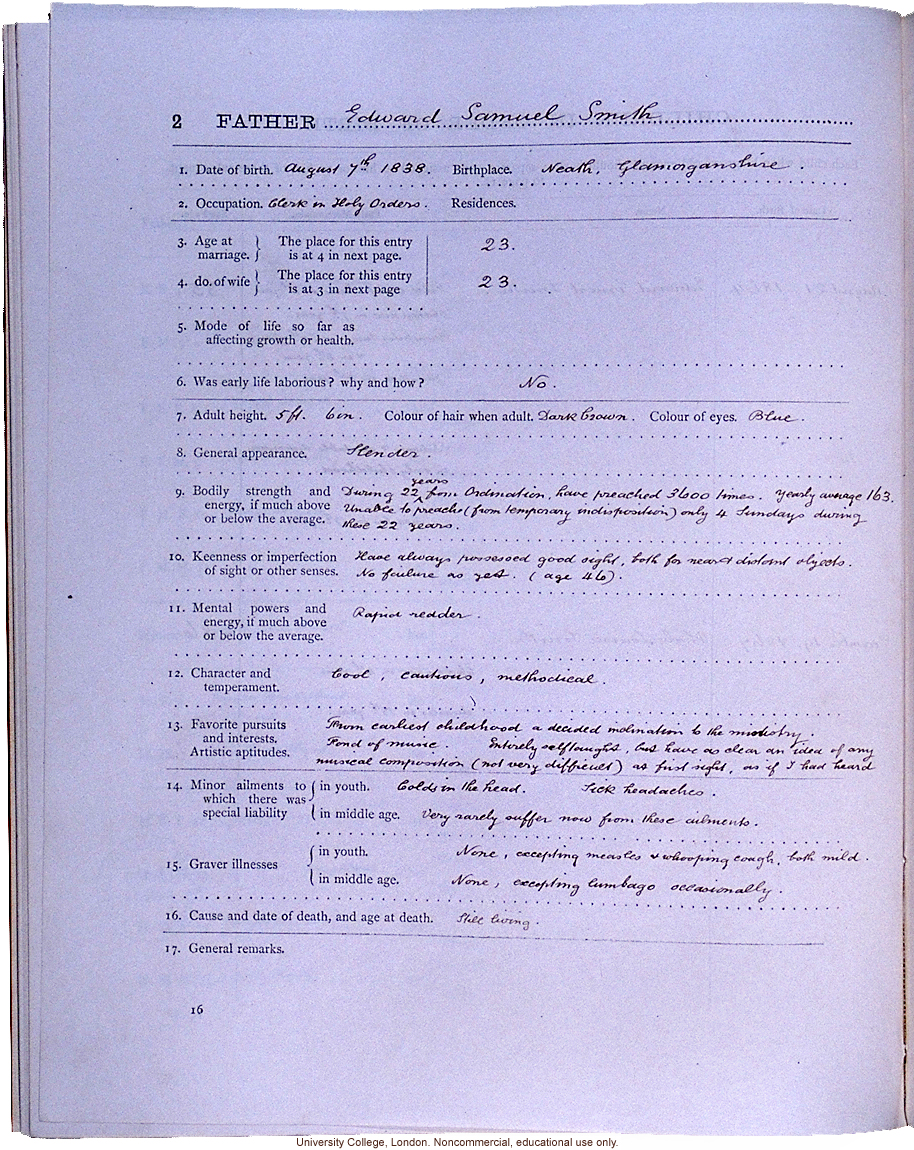 2 FATHER Edward Samuel Smith
1. Date of birth. August 7th 1838. Birthplace. Neath, Glamorganshire.
2. Occupation. Clerk in Holy Orders. Residences.
3. Age at marriage. } The place for this entry is at 4 in next page. 23.
4. do. of wife } The place for this entry is at 3 in next page 23.
5. Mode of life so far as
affecting growth or health.
6. Was early life laborious? why and how? No.
7. Adult height. 5 ft. 6 in. Colour of hair when adult. Dark brown. Colour of eyes. Blue.
8. General appearance. Slender.
9. Bodily strength and energy, if much above or below the average.
During 22 years from Ordination, have preached 3600 times. Yearly average 163.
Unable to preach (from temporary indisposition) only 4 Sundays during
these 22 years.
10. Keenness or imperfection of sight or other senses.
Have always possessed good sight, both for near & distant objects.
No failure as yet. (age 46).
11. Mental powers and energy, if much above or below the average.
Rapid redder.
12. Character and temperament. Cool, cautious, methodical.
13. Favorite pursuits and interests. Artistic aptitudes.
From earliest childhood a decided inclination to the ministry.
Fond of music. Entirely selftaught, but have as clear an idea of any
musical composition (not very difficult) at first sight, as if I had heard
14. Minor ailments to which there was special liability
{ in youth. Colds in the head. Sick headaches.
{ in middle age. Very rarely suffer now from these ailments.
15. Graver illnesses
{ in youth. None, excepting measles & whooping cough, both mild.
{ in middle age. None, excepting lumbago occasionally.
16. Cause and date of death, and age at death. Still living.
17. General remarks.
16
University College, London. Noncommercial, educational use only.